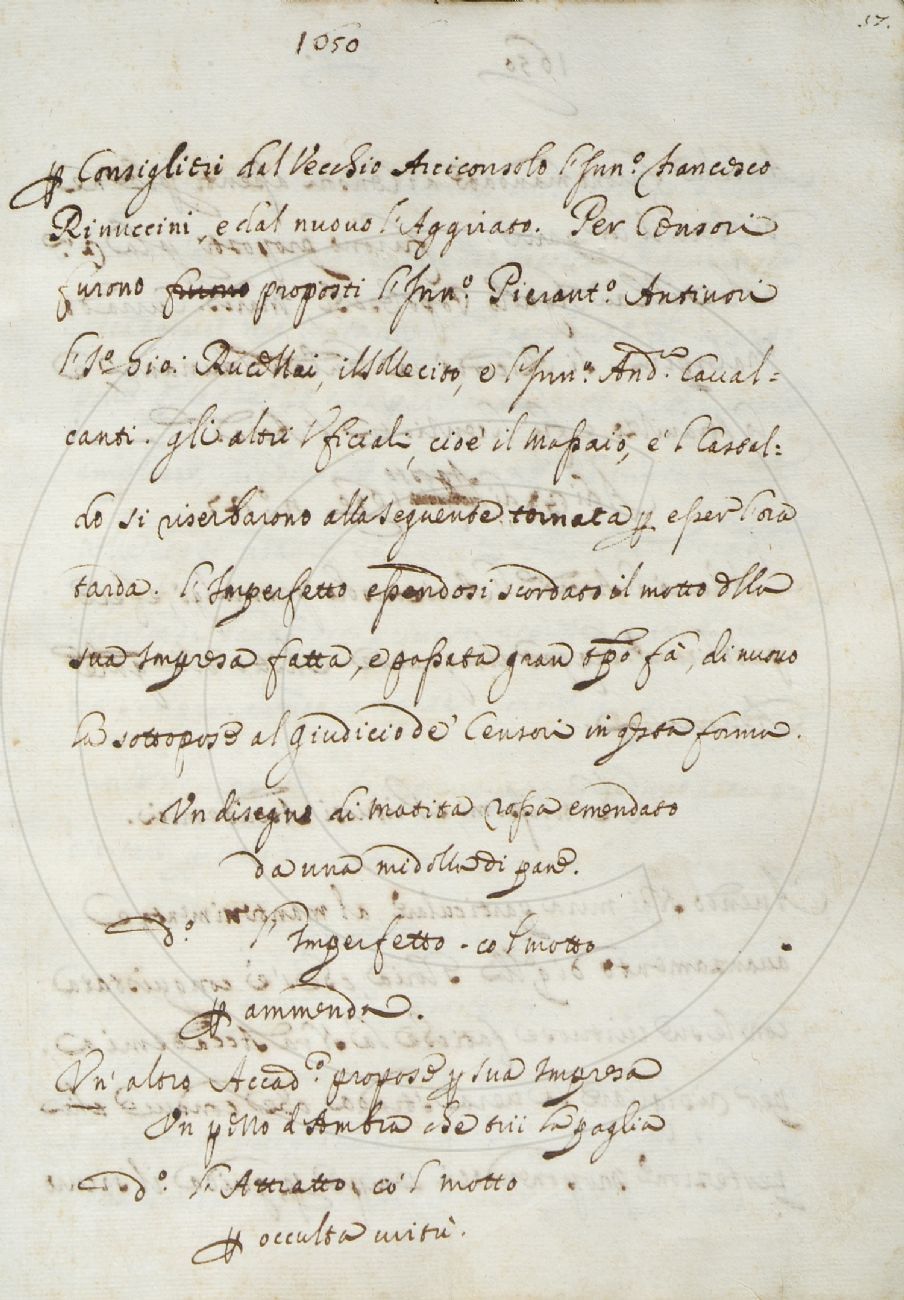 57.
1650
p Consiglieri dal Vecchio Arciconsolo l'Inn.º Francesco
Rinuccini, e dal nuovo l'Aggirato. Per Censori
furono furono proposti l'Inn.º Pierant.º Antinori
Rucellai, il Sollecito, e l'Inn.º And.ª Caval=
canti. gli altri Ufficiali, cioè il Massaio, e 'l Castal=
do si riserbarono alla seguente tornata p esser l'ora
tarda. l'Imperfetto essendosi scordato il motto della
sua Impresa fatta, e passata gran tpo fà, di nuovo
la sottopose al Giudicio de' Censori in qsta forma.
Un disegno di Matita rossa emendato
da una midolla di pane.
d.º l'Imperfetto. co 'l motto
p ammenda.
Un' altro Accad.º propose p sua Impresa
Un pezzo d'Ambra che tiri la paglia
d.º l'Attratto, co 'l motto
p occulta virtù.